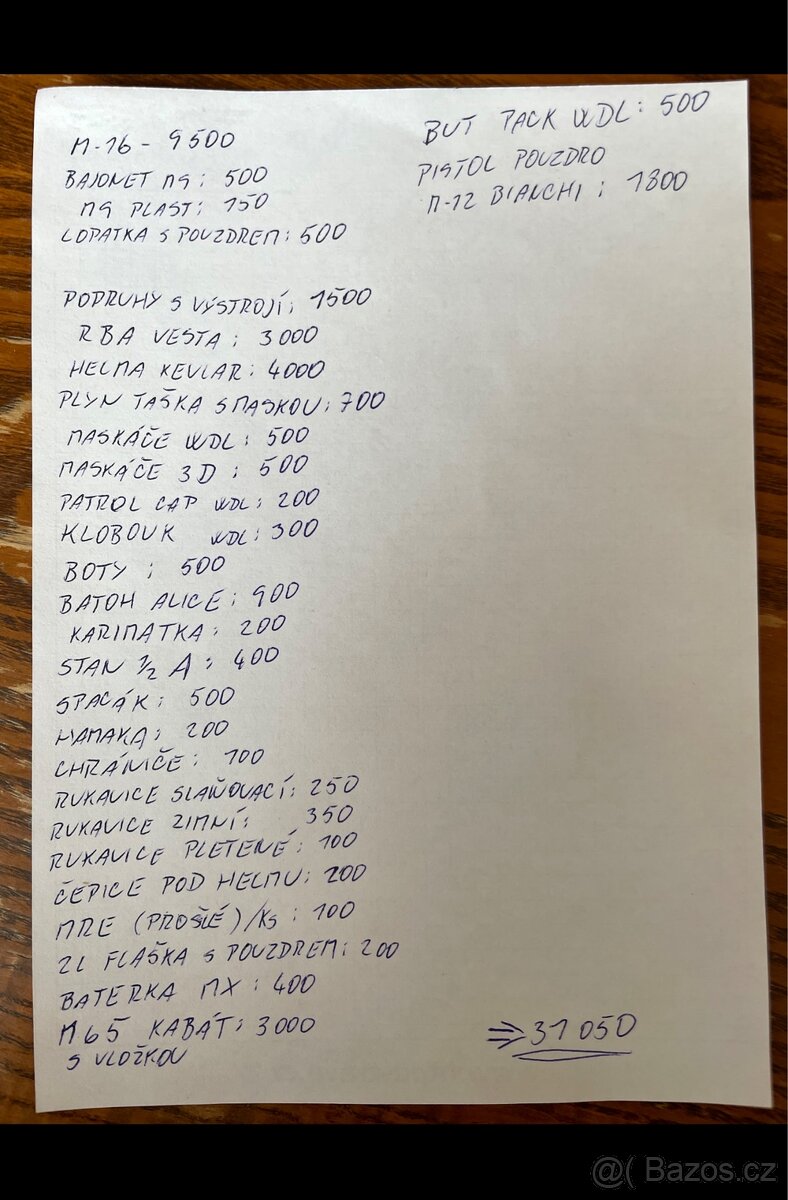 M-16 - 9500
BAJONET M9: 500
M9 PLAST: 150
LOPATKA S POUZDREM: 500
PODRUHY S VÝSTROJÍ: 1500
RBA VESTA: 3000
HELMA KEVLAR: 4000
PLYN TAŠKA S MASKOU: 700
MASKÁČE WDL: 500
MASKÁČE 3D: 500
PATROL CAP WDL: 200
KLOBOUK WDL: 300
BOTY: 500
BATOH ALICE: 900
KARIMATKA: 200
STAN 1/2 A: 400
SPACÁK: 500
HAMAKA: 200
CHRÁNIČE: 100
RUKAVICE SLAŇOVACÍ: 250
RUKAVICE ZIMNÍ: 350
RUKAVICE PLETENÉ: 100
ČEPICE POD HELMU: 200
MRE (PROŠLÉ)/KS: 100
2L FLAŠKA S POUZDREM: 200
BATERKA MX: 400
M65 KABÁT: 3000
S VLOŽKOU
BUT PACK WDL: 500
PISTOL POUZDRO
M-12 BIANCHI: 1800
⇒ 31 050
@( Bazos.cz